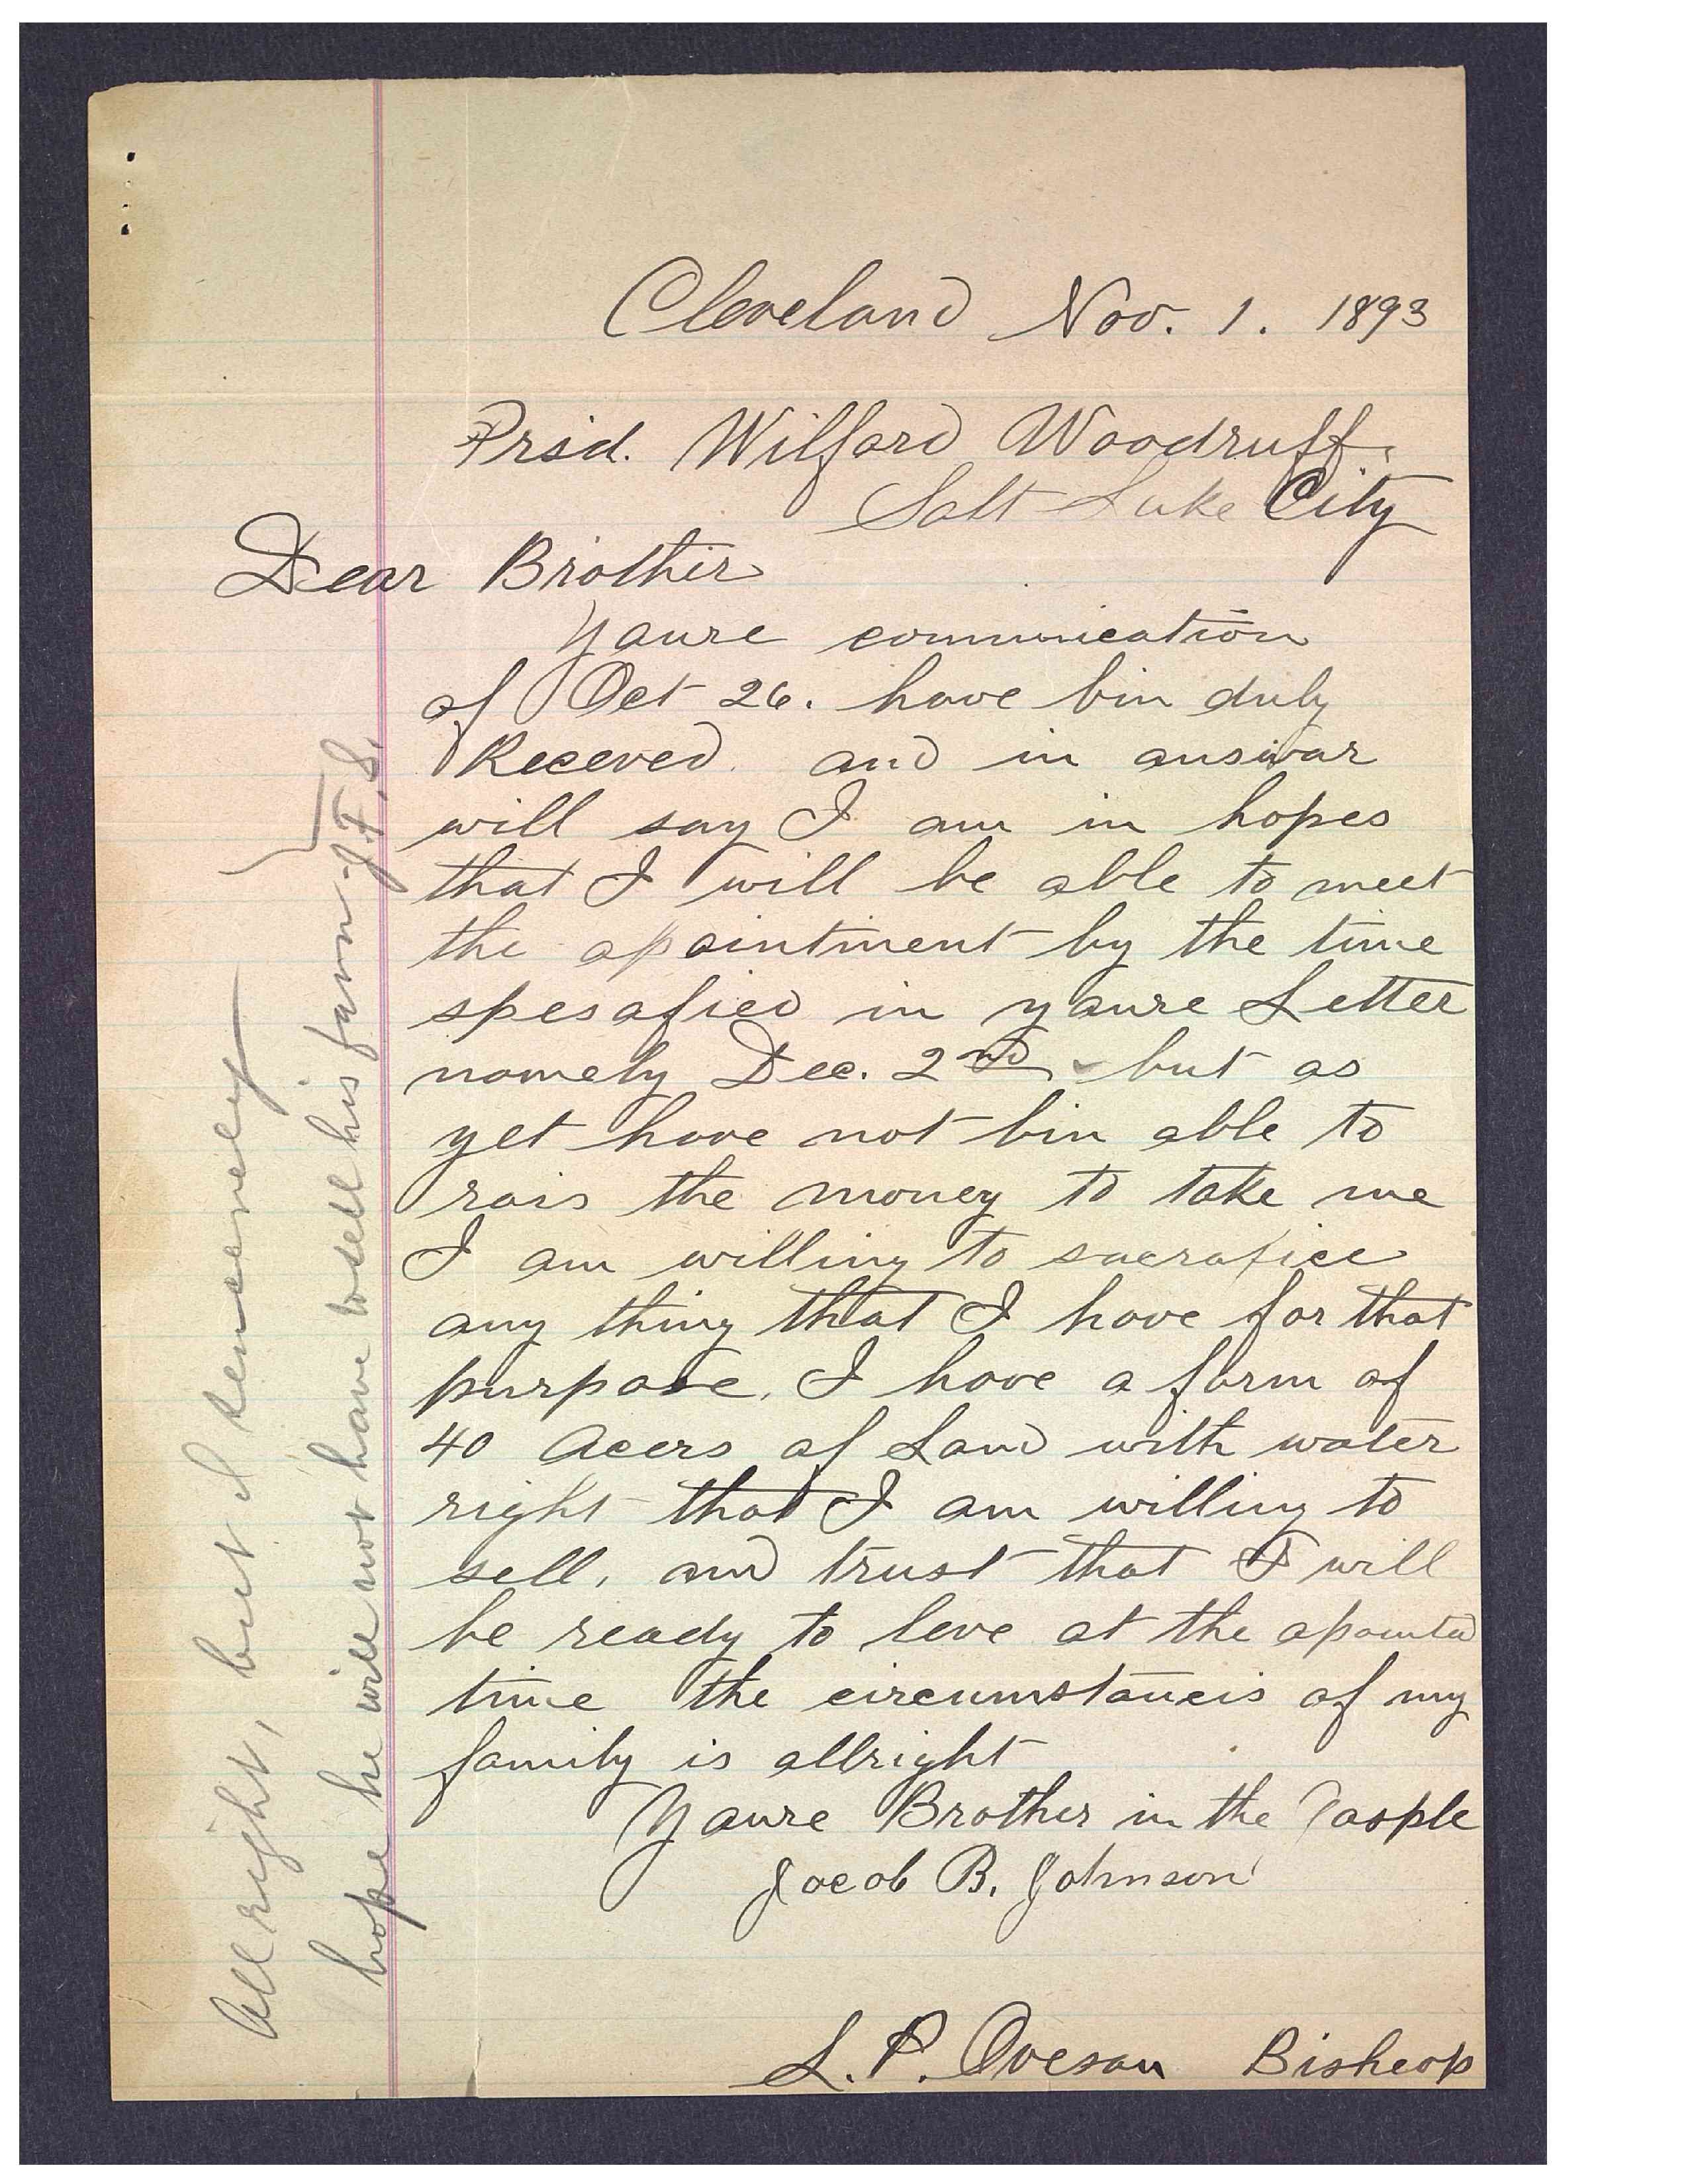 Cleveland Nov. 1. 1893
Prsd. Wilford Woodruff.
Salt Lake City
Dear Brother
Youre communication
of Oct 26. have bin duly
Receved. and in answar
will say I am in hopes
that I will be able to meet
the apointment by the time
spesafied in youre Letter
namely Dec. 2nd but as
yet have not bin able to
rais the money to take me
I am willing to sacrafice
any thing that I have for that
purpose. I have a farm of
40 Acers of Land with water
right that I am willing to
sell. and trust that I will
be ready to leve at the apointed
time the circumstancis of my
family is allright
Youre Brother in the Gosple
Jacob B. Johnson
L. P. Oveson Bishop
All right, but I sincerely
hope he will not have to sell his farm. J. F. S.